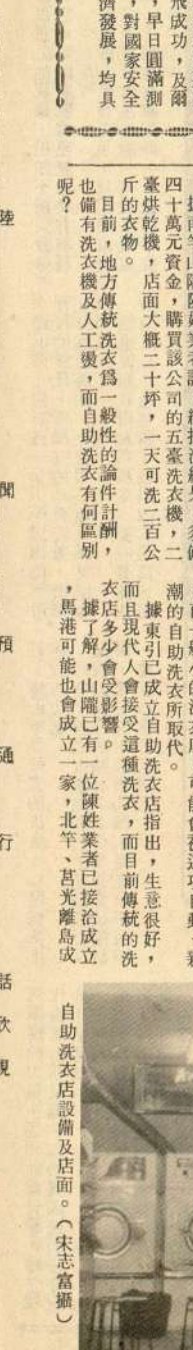 飛成功，及爾
，早日圓滿測
，對國家安全
濟發展，均具
四十萬元資金，購買該公司的五臺洗衣機，二
臺烘乾機，店面大概二十坪，一天可洗二百公
斤的衣物。
目前，地方傳統洗衣爲一般性的論件計酬，
也備有洗衣機及人工燙，而自助洗衣有何區別
呢？
潮的自助洗衣所取代。
據東引已成立自助洗衣店指出，生意很好，
而且現代人會接受這種洗衣，而目前傳統的洗
衣店多少會受影響。
據了解，山隴已有一位陳姓業者已接洽成立
，馬港可能也會成立一家，北竿、莒光離島成
自助洗衣店設備及店面。（宋志富攝）
陸
聞
預
通
行
話
欣